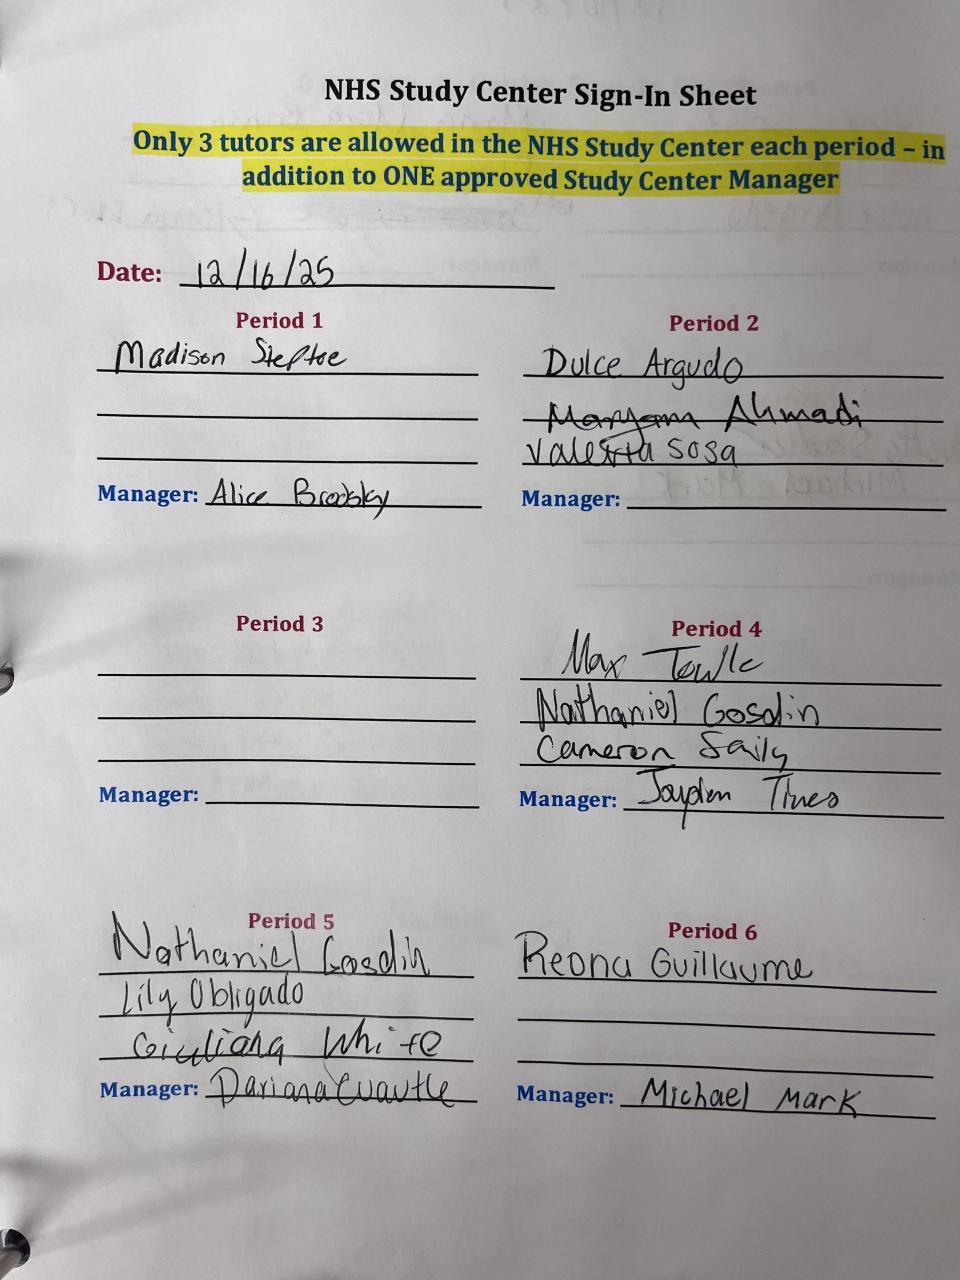 NHS Study Center Sign-In Sheet
Only 3 tutors are allowed in the NHS Study Center each period – in
addition to ONE approved Study Center Manager
Date: 12/16/25
Period 1
Madison Steptoe
Manager: Alice Brodsky
Period 2
Dulce Argudo
Maryam Ahmadi
Valeria Sosa
Manager:
Period 3
Manager:
Period 4
Max Towle
Nathaniel Gosdin
Cameron Saily
Manager: Jayden Tines
Period 5
Nathaniel Gosdin
Lily Obligado
Giuliana White
Manager: Dariana Cuautle
Period 6
Reona Guillaume
Manager: Michael Mark